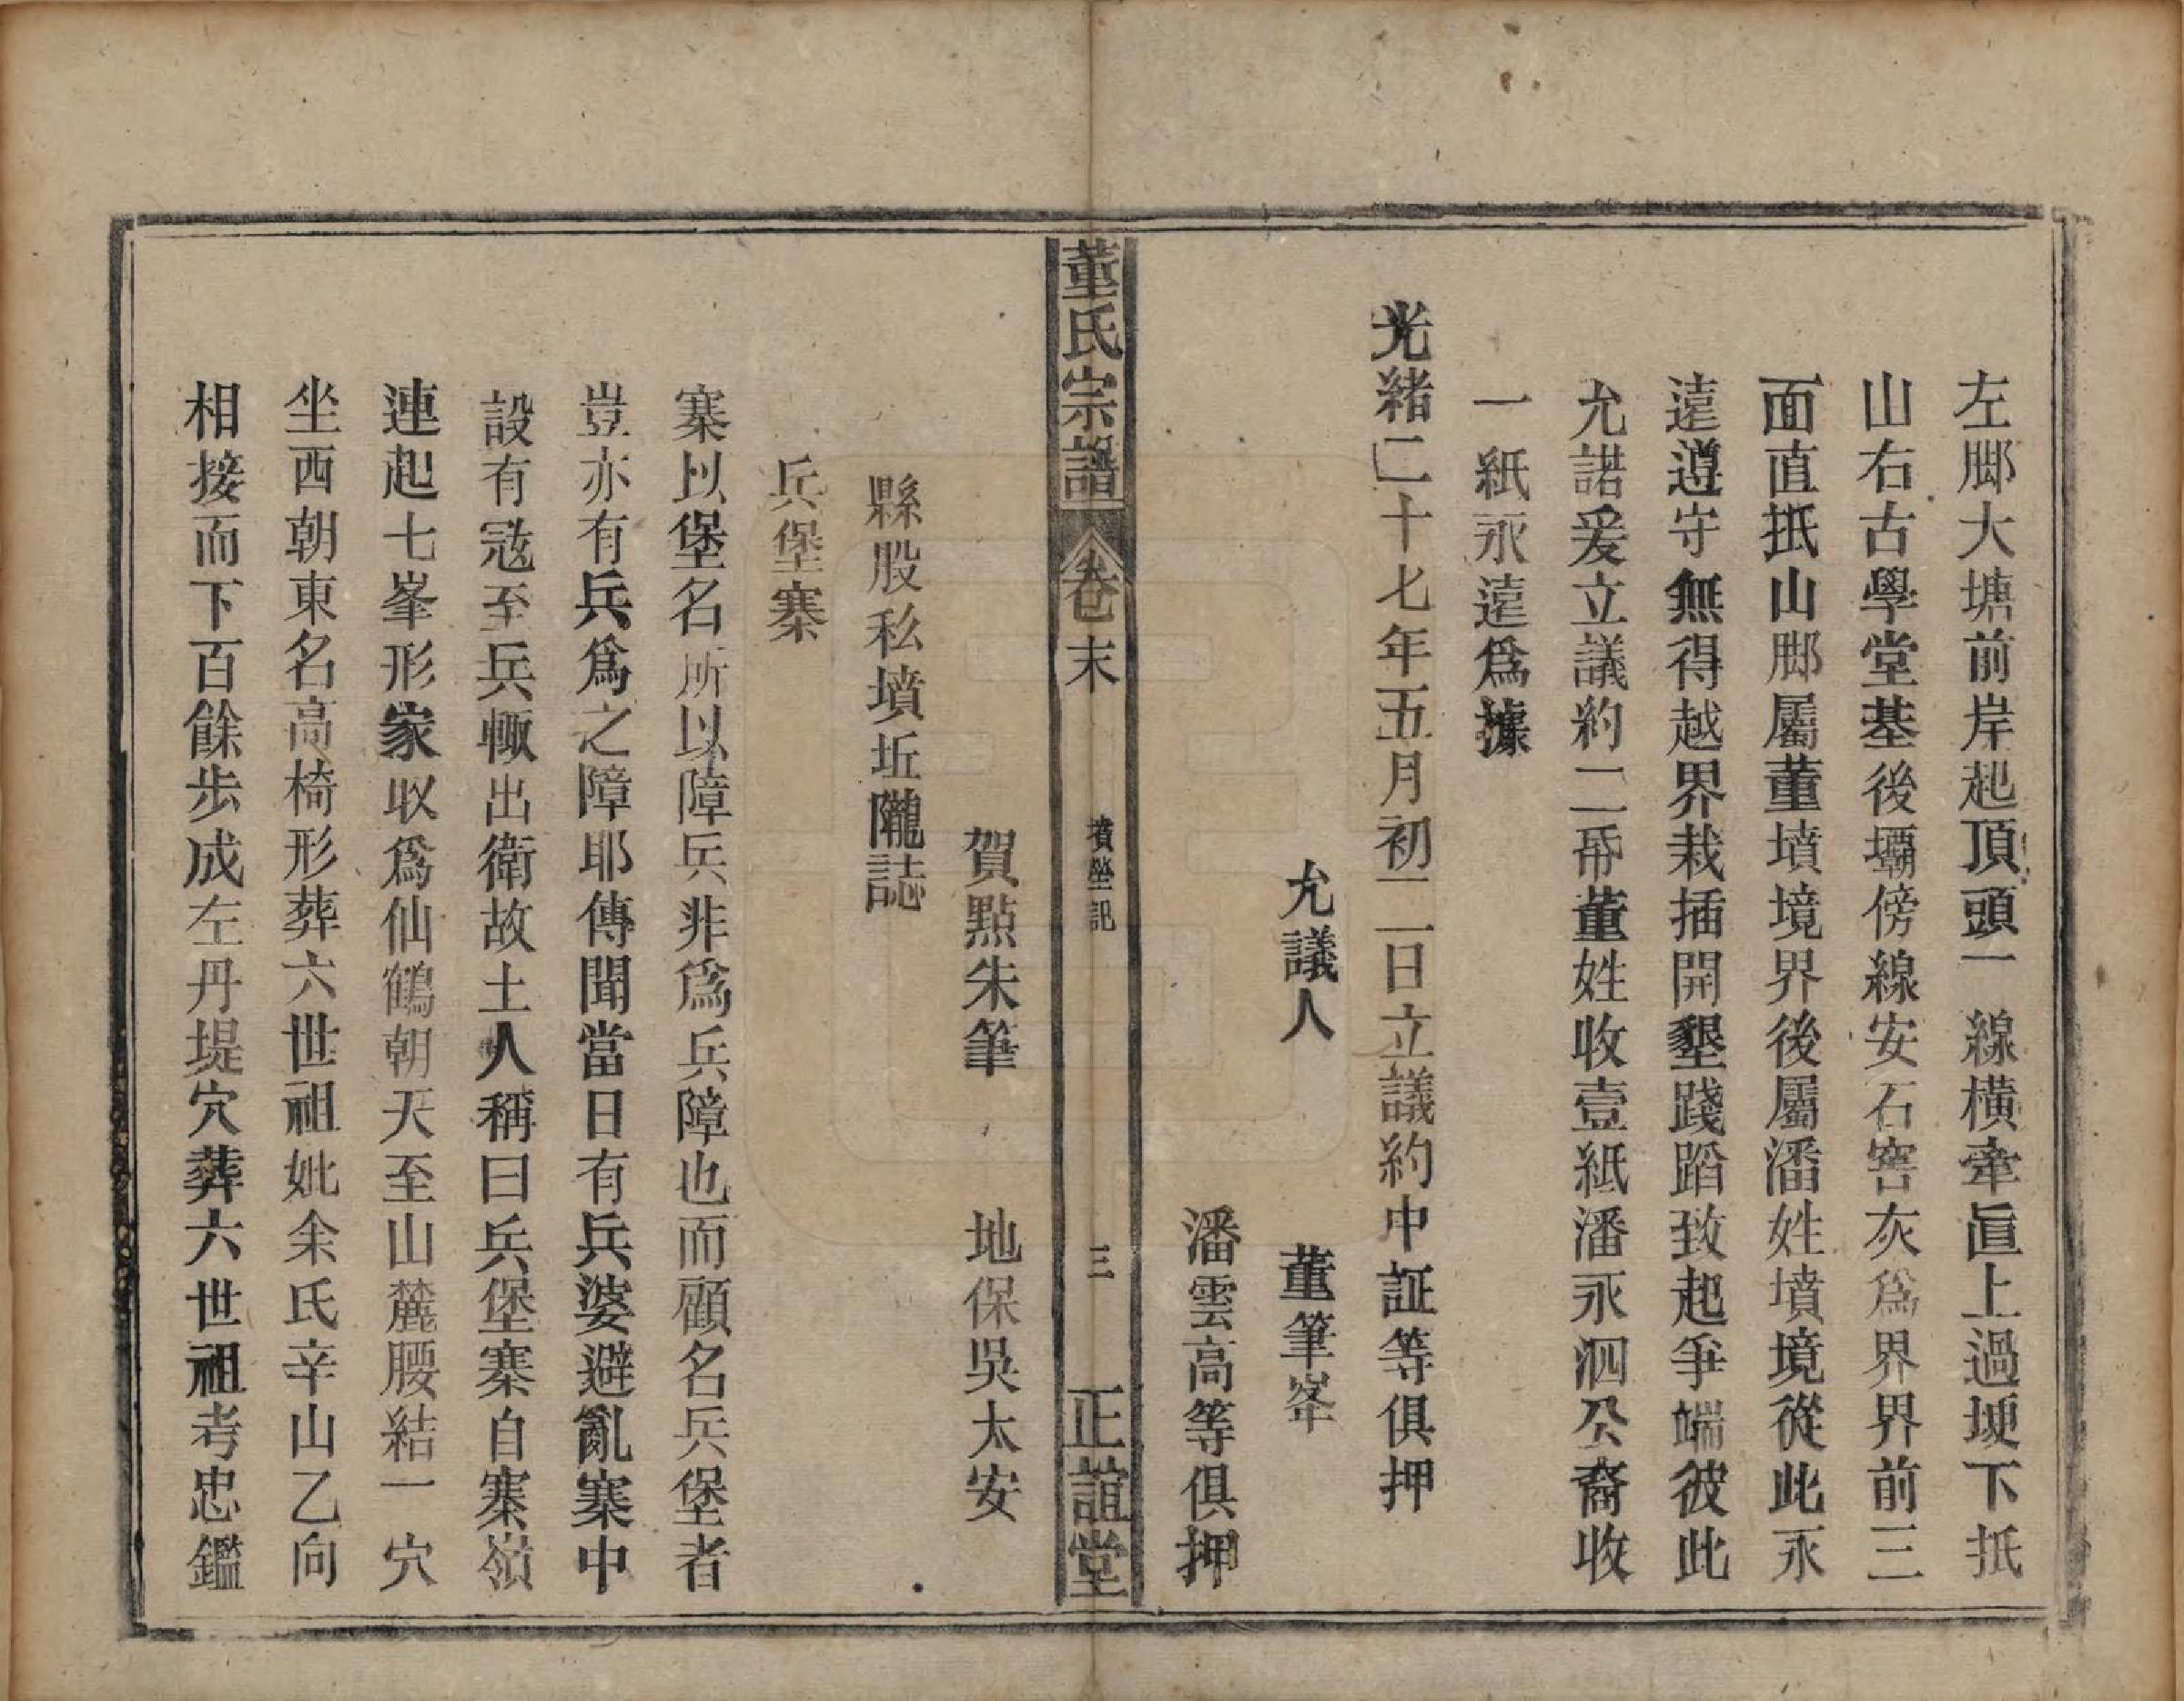 左脚大塘前岸起頂頭一線橫牽直上過埂下抵
山右古學堂基後壩傍線安石窖灰爲界界前三
面直抵山脚屬董墳境界後屬潘姓墳境從此永
遠遵守無得越界栽插開墾踐蹈致起爭端彼此
允諾爰立議約二帋董姓收壹紙潘永泗公裔收
一紙永遠爲據
光緒二十七年五月初二日立議約中証等俱押
允議人 董筆峯
潘雲高等俱押
董氏宗譜 卷末 墳塋記 三 正誼堂
賀點朱筆 地保吳太安
縣股私墳坵隴誌
兵堡寨
寨以堡名所以障兵非爲兵障也而顧名兵堡者
豈亦有兵爲之障耶傳聞當日有兵婆避亂寨中
設有寇至兵輙出衛故土人稱曰兵堡寨自寨嶺
連起七峯形家収爲仙鶴朝天至山麓腰結一穴
坐西朝東名高椅形葬六世祖妣余氏辛山乙向
相接而下百餘步成左丹堤穴葬六世祖考忠鑑